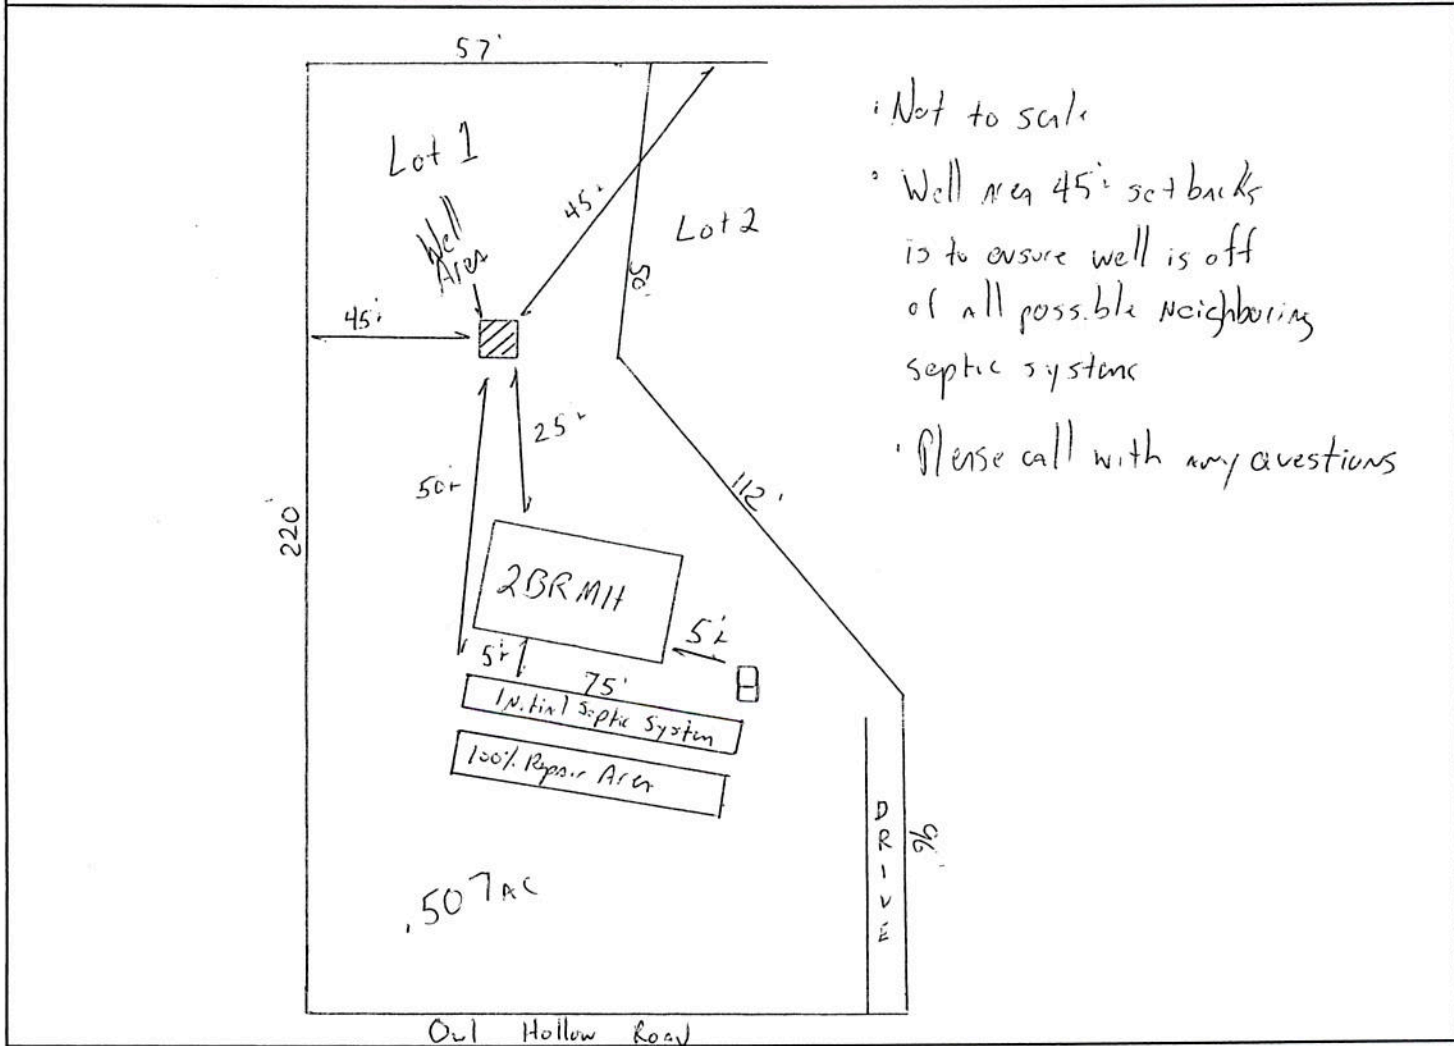 57'
Lot 1
Well
Area
45'±
Lot 2
50'
45'±
25'±
50'±
220'
112'
2BR MH
5'±
5'±
75'
Initial Septic System
100% Repair Area
DRIVE
96'
.507 AC
Owl Hollow Road
· Not to scale
· Well Area 45'± setbacks
is to ensure well is off
of all possible Neighboring
septic systems
· Please call with any questions